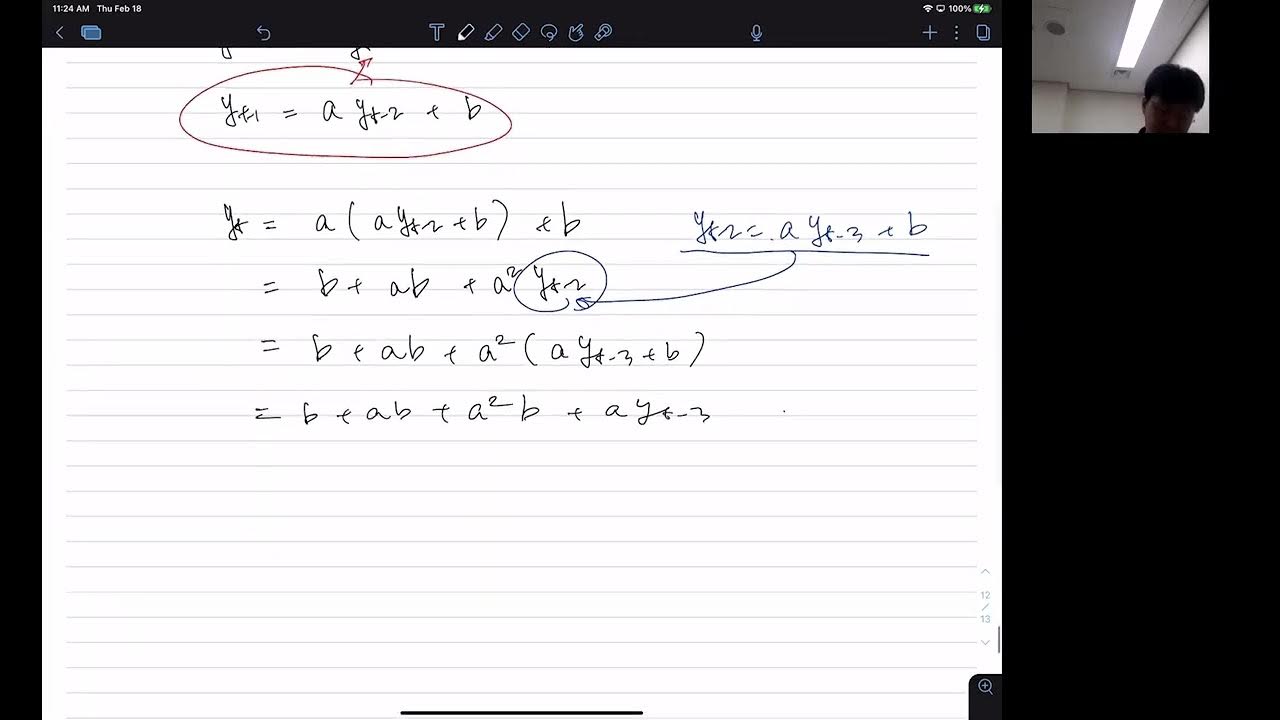 11:24 AM Thu Feb 18
100%
T
y_{t-1} = a y_{t-2} + b
y_t = a ( a y_{t-2} + b ) + b
y_{t-2} = a y_{t-3} + b
= b + ab + a² y_{t-2}
= b + ab + a² ( a y_{t-3} + b )
= b + ab + a² b + a y_{t-3}
12
/
13